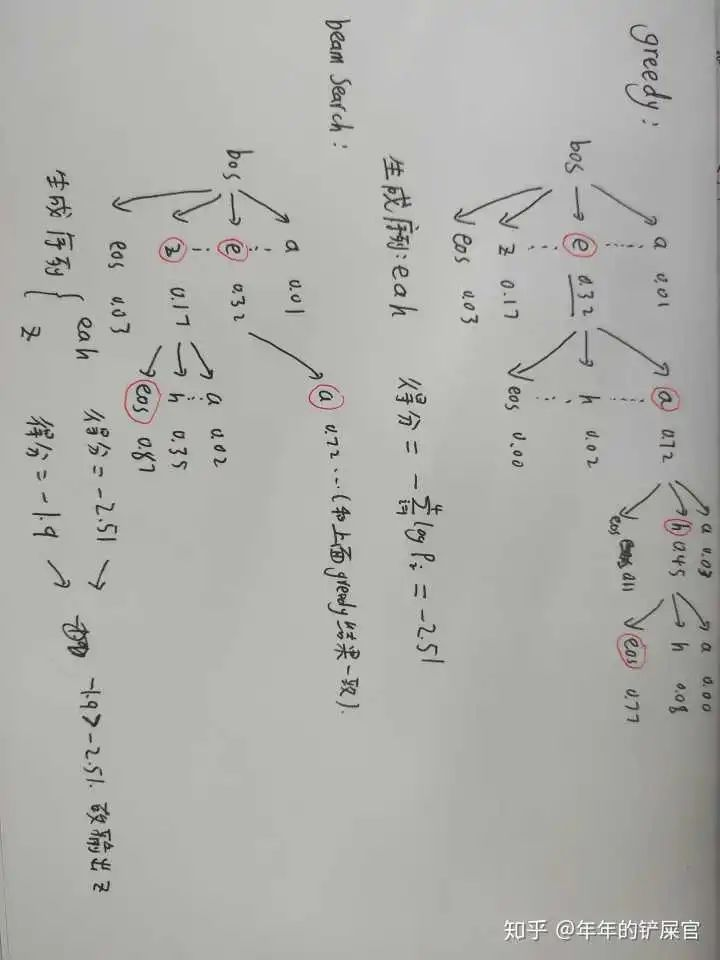 greedy:
a 0.01
bos → e 0.32
z 0.17
eos 0.03
a 0.72
h 0.02
eos 0.00
a 0.03
h 0.45
eos 0.11
a 0.00
h 0.08
eos 0.77
生成序列: eah 得分 = - log Pᵢ = -2.51
beam search:
a 0.01
bos → e 0.32
z 0.17
eos 0.03
a 0.72 ...(和上面greedy结果一致).
a 0.02
h 0.35
eos 0.87
生成序列 { eah 得分 = -2.51
z 得分 = -1.9
-1.9 > -2.51. 故输出 z
知乎 @年年的铲屎官